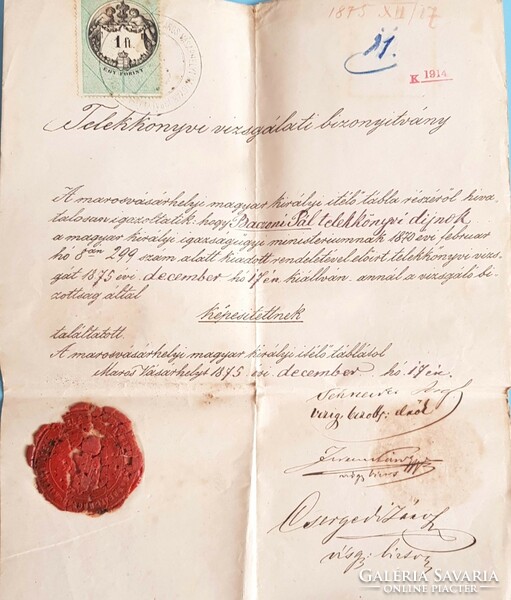 1875 XII/17
1 ft.
EGY FORINT
K 1914
Telekkönyvi vizsgálati bizonyitvány
A marosvásárhelyi magyar királyi itélő tábla részéről hiva-
talosan igazoltatik: hogy Baczoni Pál telekkönyvi dijnok
a magyar királyi igazságügyi ministeriumnak 1870 évi február
hó 8-án 299 szám alatt kiadott rendeletével előirt telekkönyvi vizs-
gát 1875 évi december hó 17én kiállván, annál a vizsgáló bi-
zottság által
képesitettnek
találtatott.
A marosvásárhelyi magyar királyi itélő táblától
Maros Vásárhelyt 1875 évi december hó 17én.
vizsg. bizotts. elnök
vizsg. biztos
Csergedi János
vizsg. biztos
GALÉRIA SAVARIA
ONLINE PIACTÉR